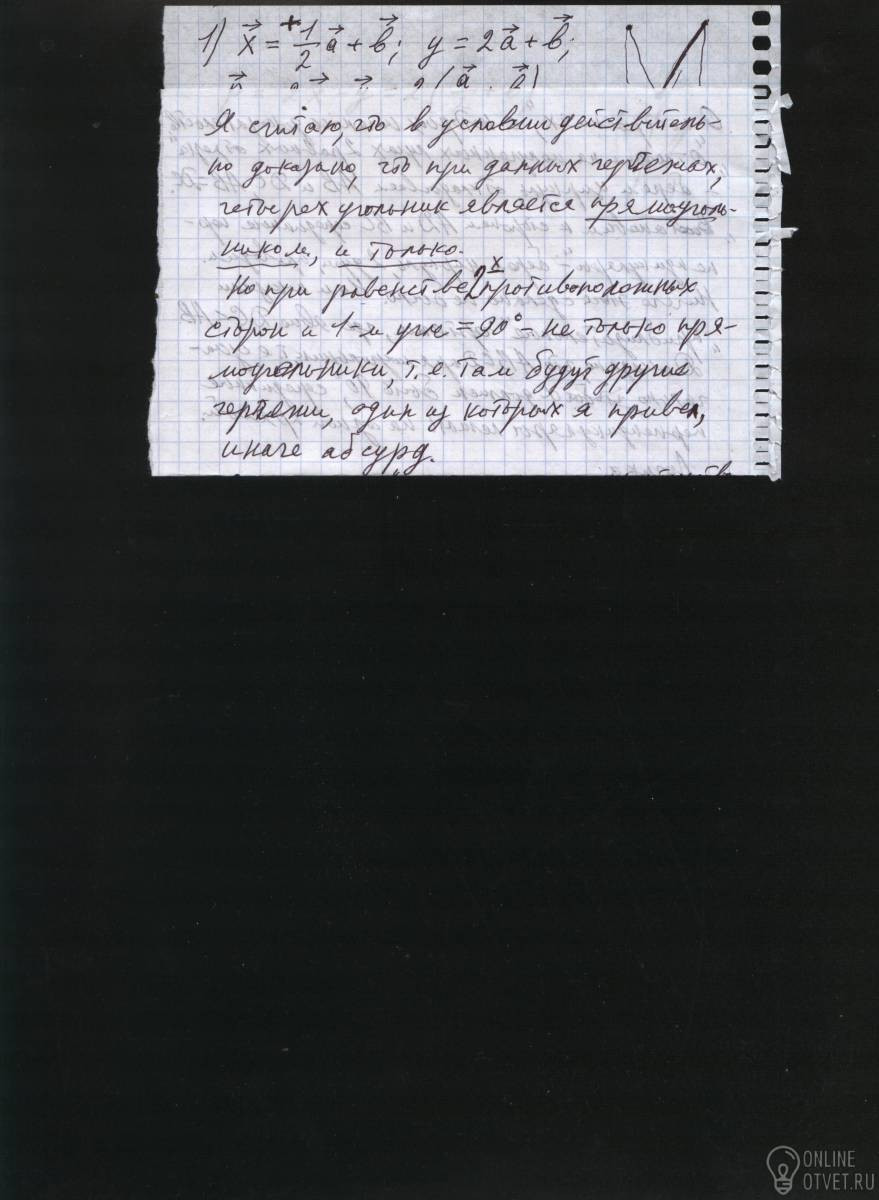 1) x⃗ = +1/2 a⃗ + b⃗; y = 2a⃗ + b⃗;
Я считаю, что в условии действитель-
но доказано, что при данных чертежах,
четырехугольник является прямоуголь-
ником, и только.
Но при равенстве 2х противоположных
сторон и 1-м угле = 90° - не только пря-
моугольники, т.е. там будут другие
чертежи, один из которых я привел,
иначе абсурд.
ONLINE
OTVET.RU